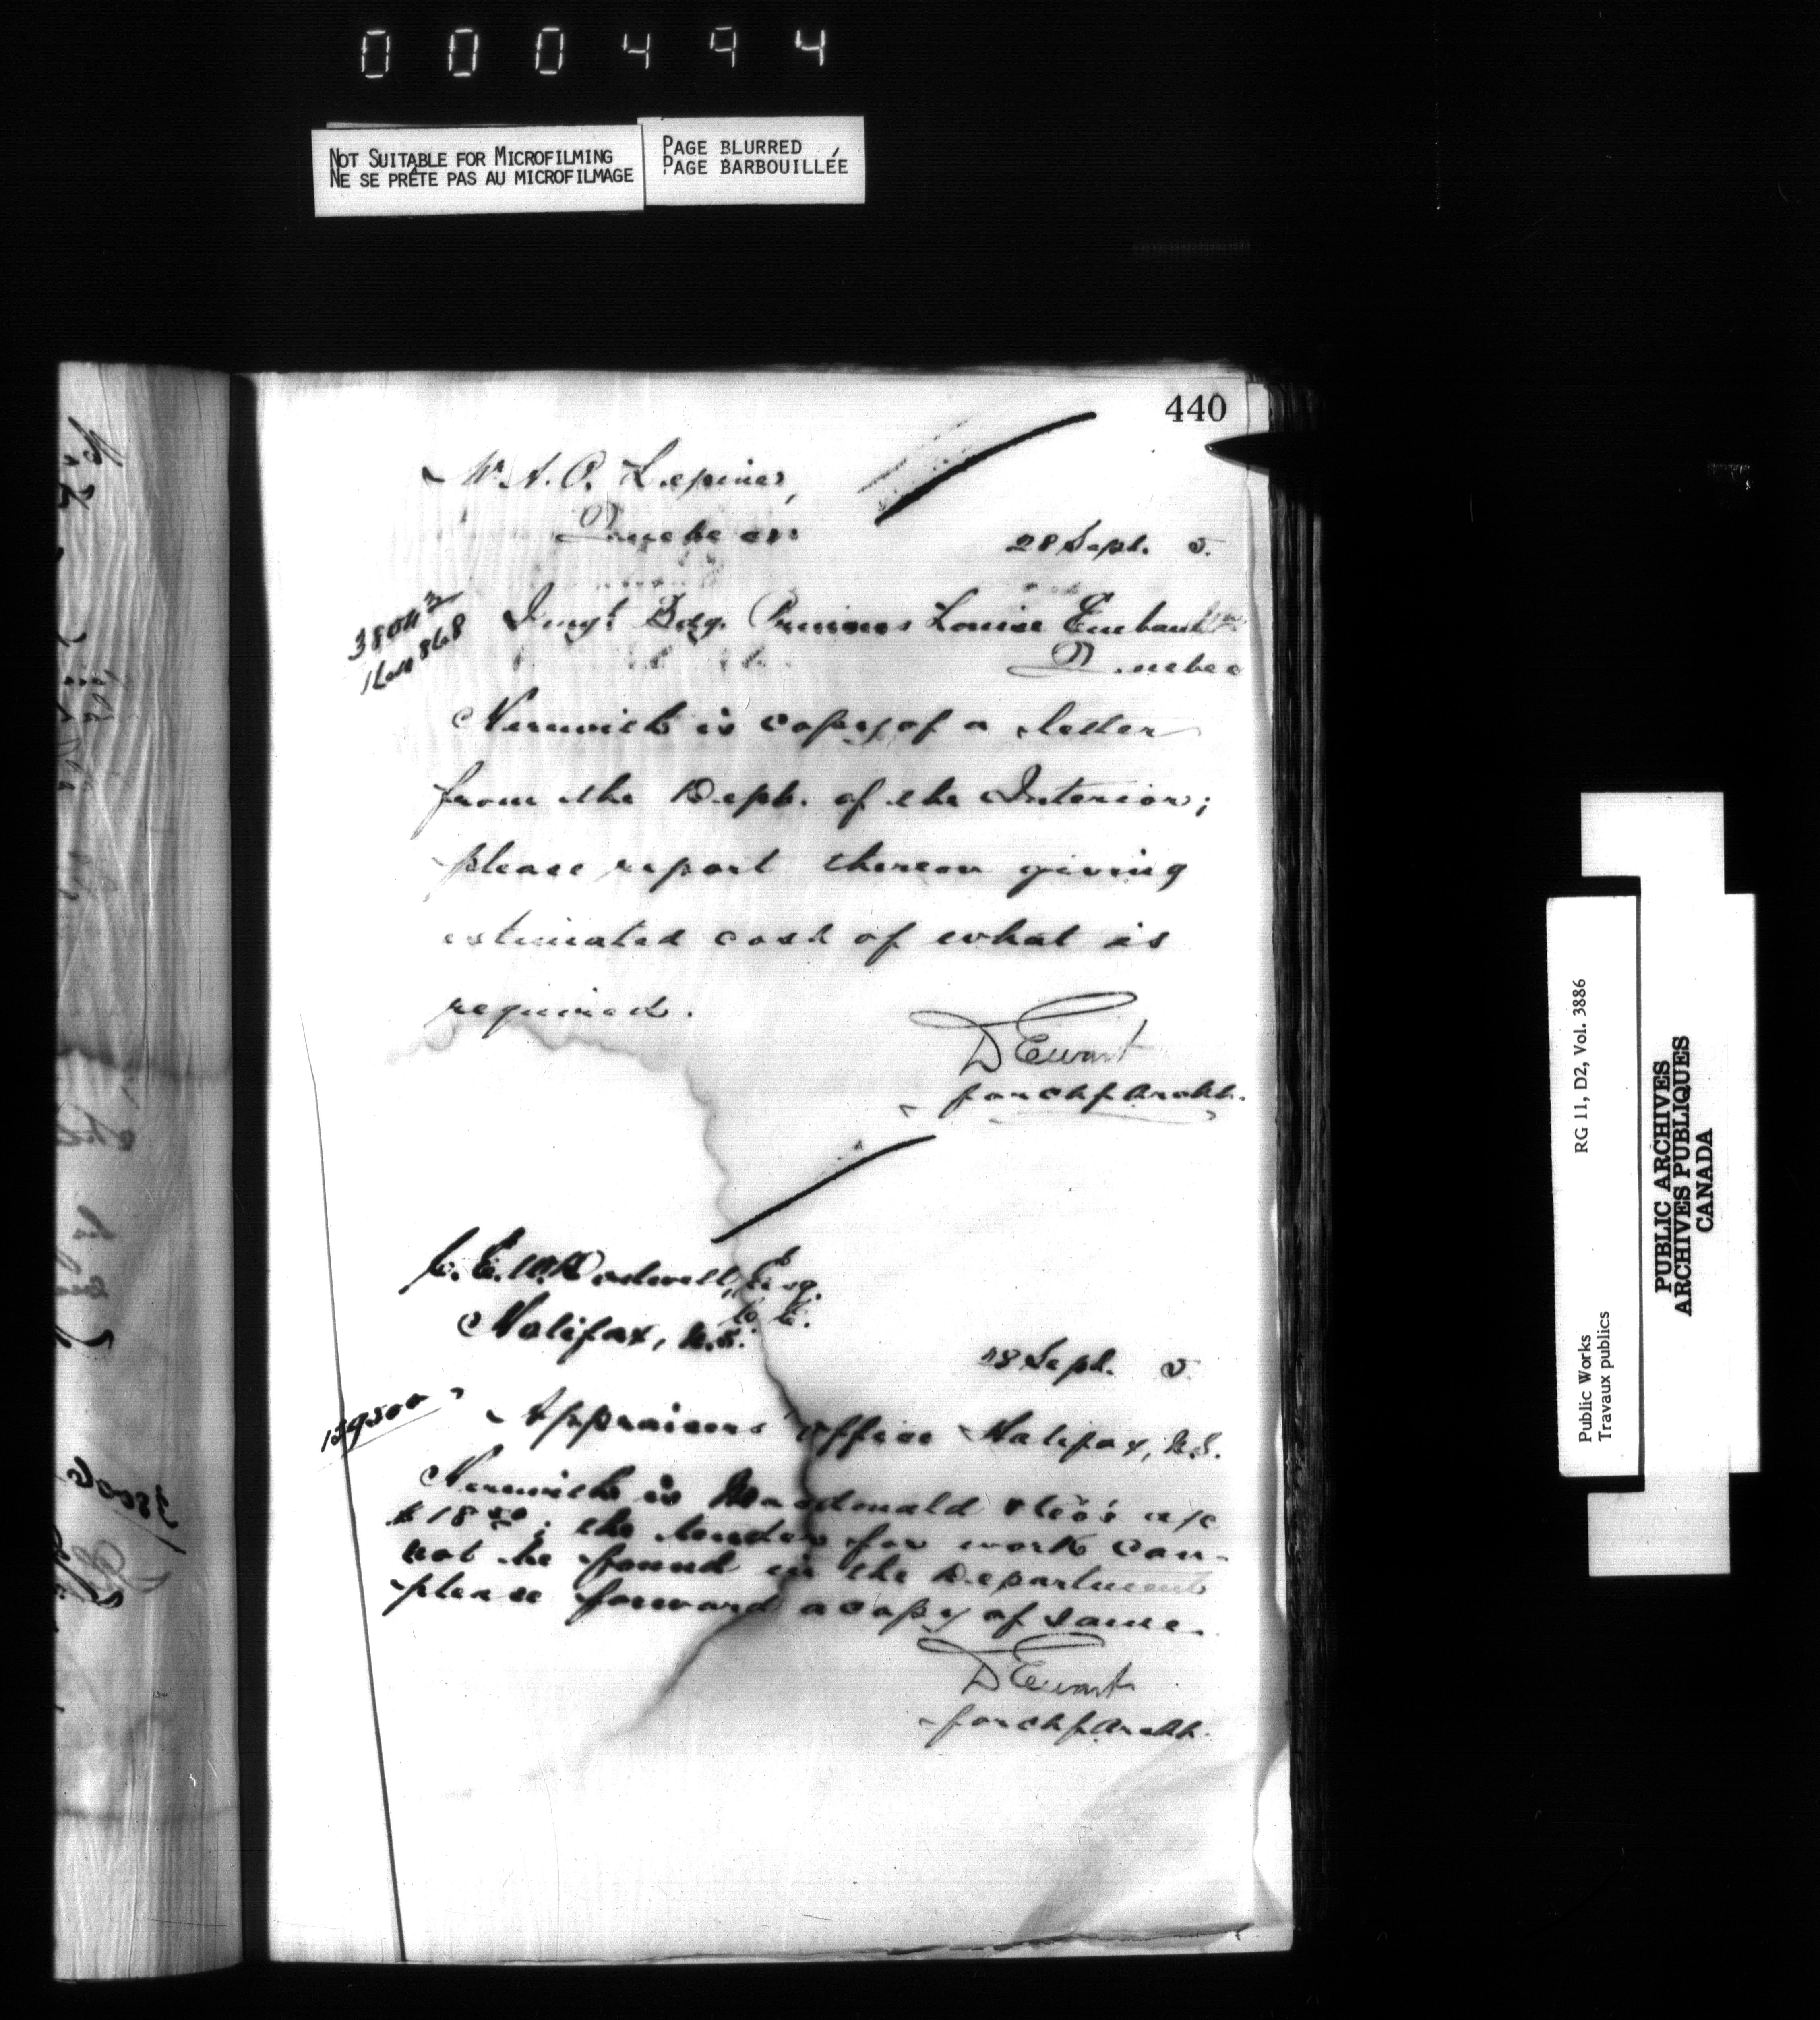 000494
NOT SUITABLE FOR MICROFILMING
NE SE PRÊTE PAS AU MICROFILMAGE
PAGE BLURRED
PAGE BARBOUILLÉE
440
A. O. Lepine,
Quebec
28 Sept. 5.
Bdg. Princess Louise Embankt
Quebec
Herewith is copy of a letter
from the Dept. of the Interior;
please report thereon giving
estimated cost of what is
required.
D Ewart
for chf Archt.
C. E. W. Dodwell, Esq.
C. E.
Halifax, N.S.
28 Sept. 5
Appraisers' Office Halifax, N.S.
Herewith is Macdonald & Co's a/c
$18 50; the tender for work can-
not be found in the Department
please forward a copy of same.
D Ewart
for chf Archt.
Public Works
Travaux publics
RG 11, D2, Vol. 3886
PUBLIC ARCHIVES
ARCHIVES PUBLIQUES
CANADA